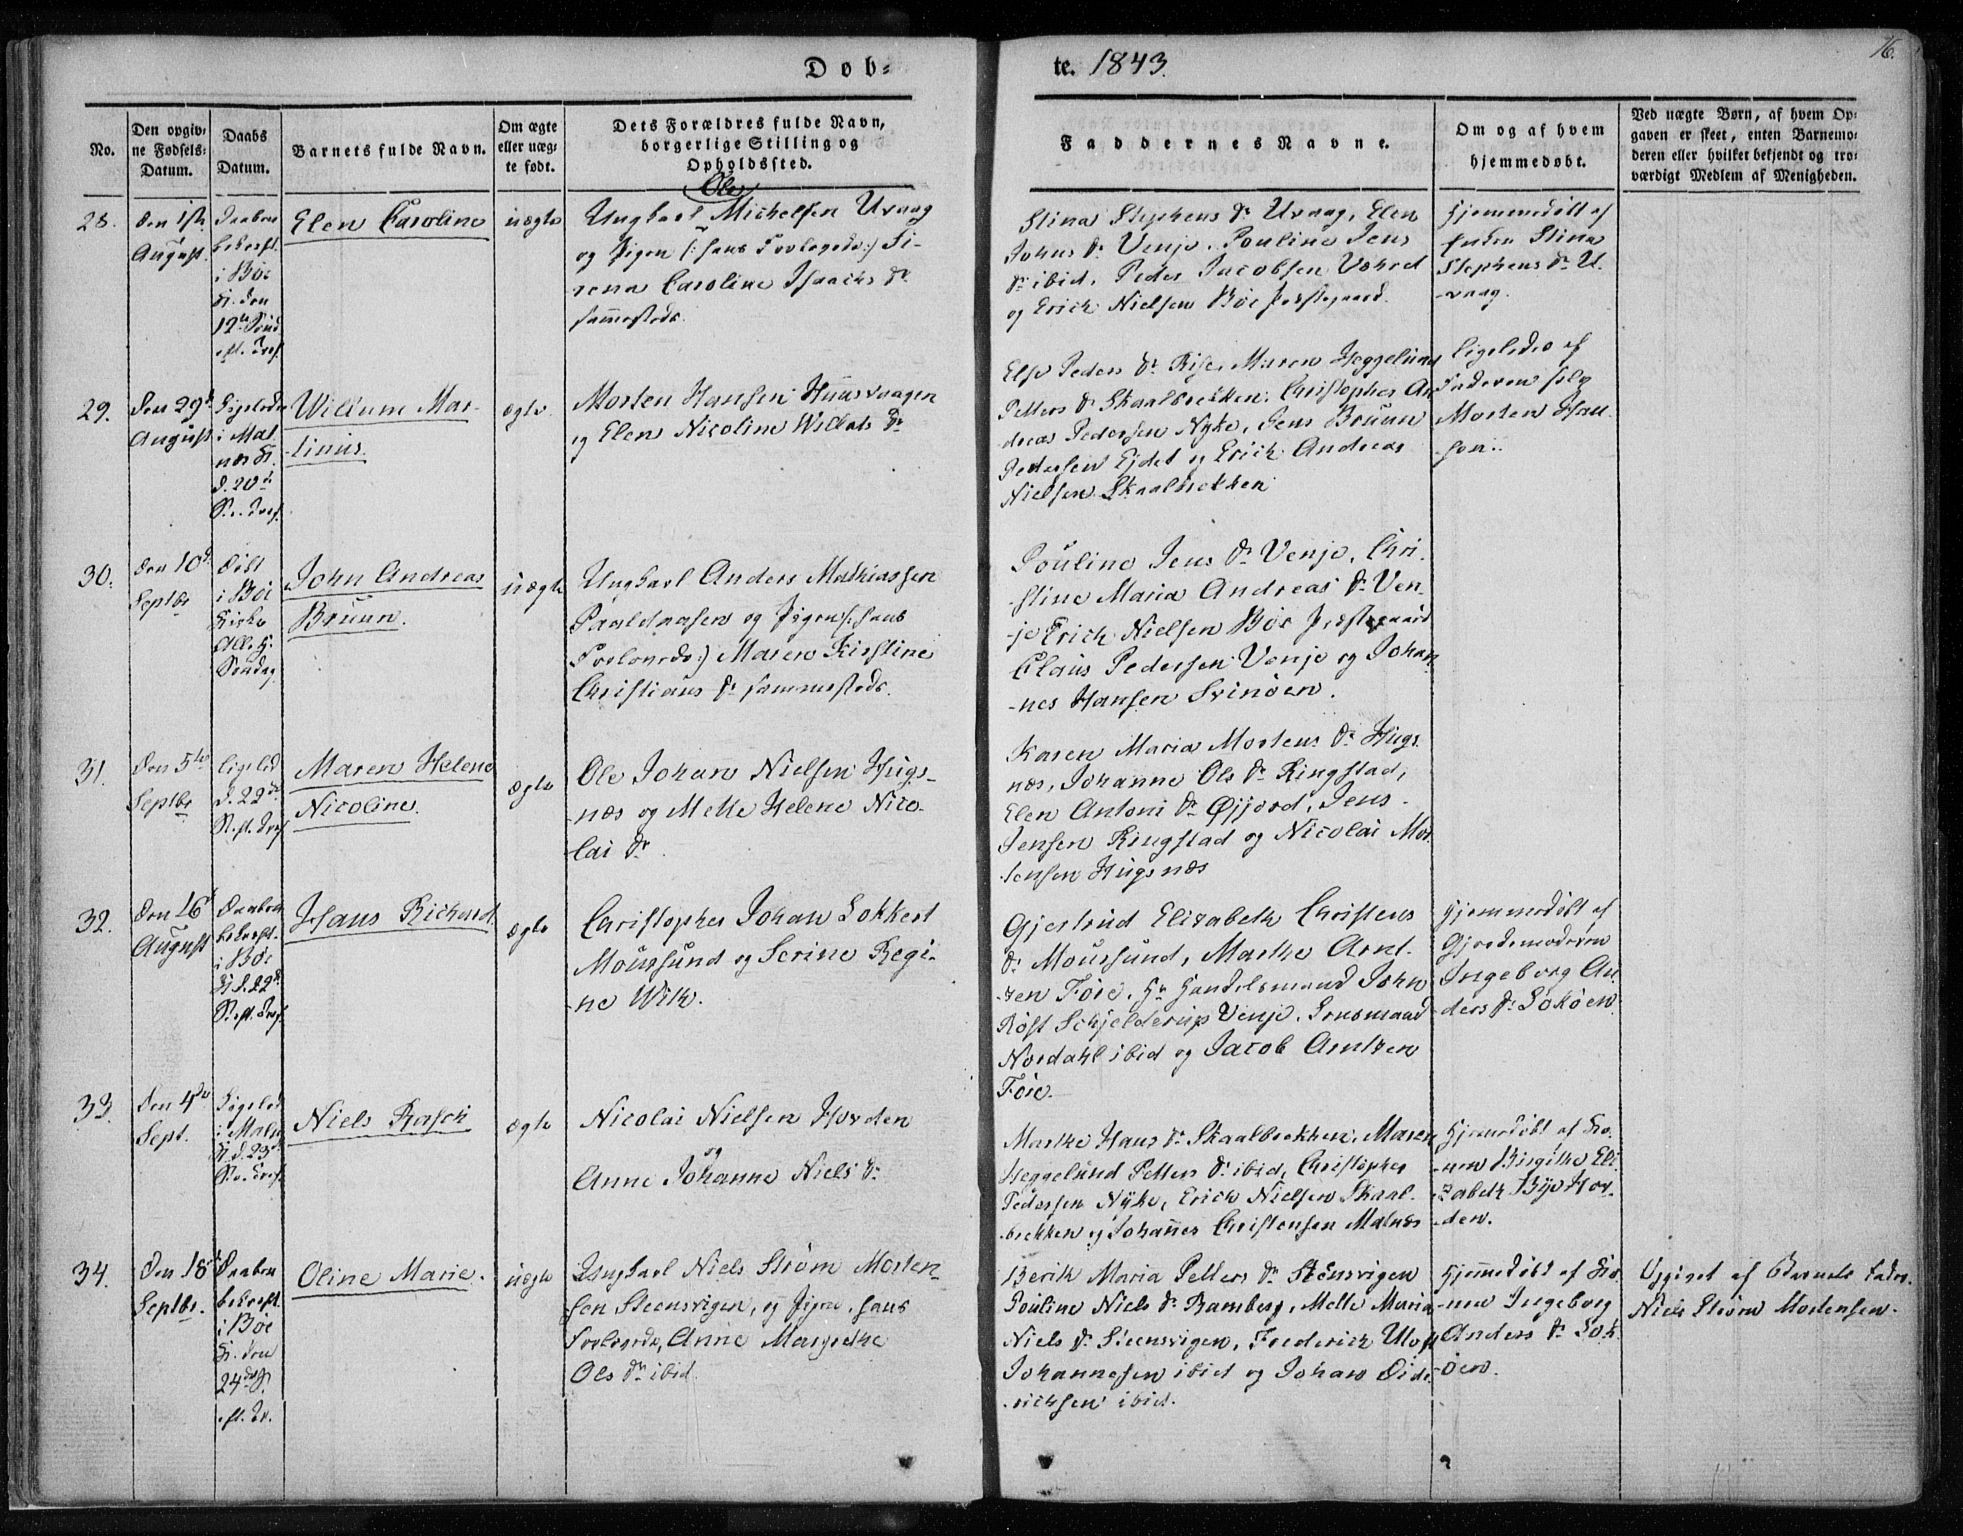 Døb-
te. 1843.
16.
No.
Den opgiv-
ne Fødsels-
Datum.
Daabs
Datum.
Barnets fulde Navn.
Om ægte
eller uæg-
te født.
Dets Forældres fulde Navn,
borgerlige Stilling og
Opholdssted.
Faddernes Navne.
Om og af hvem
hjemmedøbt.
Ved uægte Børn, af hvem Op-
gaven er skeet, enten Barnemo-
deren eller hvilket bekjendt og tro-
værdigt Medlem af Menigheden.
28.
den 1ste
August.
Daaben
bekræft.
i Böe
K. den
12te Sønd.
eft. Tref.
Elen Caroline
uægte
Ole
Ungkarl Michelsen Uvaag
og Pigen (: hans Forlovede :) Si-
rena Caroline Isaachs Dr
sammesteds.
Stina Stephens Dr Uvaag, Elen
Johns Dr Venje. Pouline Jens
Dr ibid, Peder Jacobsen
og Erich Nielsen Böe Præstegaard.
Hjemmedöbt af
Enken Stina
Stephens Dr U-
vaag.
29.
den 29d
August
Ligeledes
i Mal-
nes K.
d. 20d
S. e. Tref.
Willum Mar-
tinus.
ægte.
Morten Hansen Huusvaagen
og Elen Nicoline Willats Dr
Else Peders Dr Rise, Maren Heggelund
Petters Dr Skaalbrekken. Christopher An-
dreas Pedersen Nÿke, Jens Bruun
Pedersen Ejdet og Erich Andreas
Nielsen Skaalbrekken
Ligeledes af
Faderen selv
Morten Han-
sen.
30.
den 10d
Septbr
Döbt
i Böe
Kirke
Alle H.
Søndag.
John Andreas
Bruun.
uægte
Ungkarl Anders Mathiassen
og Pigen (: hans
Forlovede :) Maren Kirstine
Christians Dr sammesteds.
Pouline Jens Dr Venje. Chri-
stine Maria Andreas Dr Ven-
je Erich Nielsen Böe Præstegaard
Claus Pedersen Venje og Johan-
nes Hansen Svinöen.
31.
den 5te
Septbr
Ligeled.
d. 22de
S. eft. Tref.
Maren Helene
Nicoline.
ægte
Ole Johan Nielsen Hugs-
næs og Mette Helene Nico-
lai Dr.
Karen Maria Mortens Dr Hugs-
næs, Johanne Ols Dr Ringstad,
Elen Antoni Dr Øjjord, Jens
Jensen Ringstad og Nicolai Mor-
tensen Hugsnæs
32.
den 16d
August
Daaben
bekræft.
i Böe
K. d. 22d
S. eft. Tref.
Hans Richard
ægte
Christopher Johan Lokkert
Moursund og Serine Regi-
ne With.
Gjertrud Elizabeth Christens
Dr Moursund, Marthe Arnt-
zen Föie. Hr Handelsmand John
Röst Schjelderup Venje. Lensmand
Nordahl ibid og Jacob Arntzen
Föie.
Hjemmedöbt af
Gjordemoderen
Ingeborg An-
ders Dr Sokøen.
33.
Den 4de
Sept.
Ligeled.
i Maln.
K. d. 23d
S. e. Tref.
Niels Rasch
ægte
Nicolai Nielsen Horden
og
Anne Johanne Niels Dr
Marthe Hans Dr Skaalbrekken, Maren
Heggelund Petters Dr ibid, Christopher
Pedersen Nÿke, Erich Nielsen Skaal-
brekken og Johannes Christensen Malnes
Hjemedöbt af Ko-
nen Birgithe Eli-
zabeth Bÿe Hor-
den.
34.
den 18d
Septbr.
Daaben
bekræft.
i Böe
K. den
24de S.
eft. Tr.
Oline Marie.
uægte
Ungkarl Niels Ström Morten-
sen Steensvigen, og Pigen, hans
Forlovede, Anne Margrethe
Ols Dr ibid.
Berith Maria Petters Dr Steensvigen
Pouline Niels Dr Ramberg, Mette Maria
Niels Dr Steensvigen, Frederich Ulof
Johannesen ibid og Johan Dide-
richsen ibid.
Hjemmedöbt af Ko-
nen Ingeborg
Anders Dr Sok-
öen.
Opgivet af Barnets Fader
Niels Ström Mortensen.